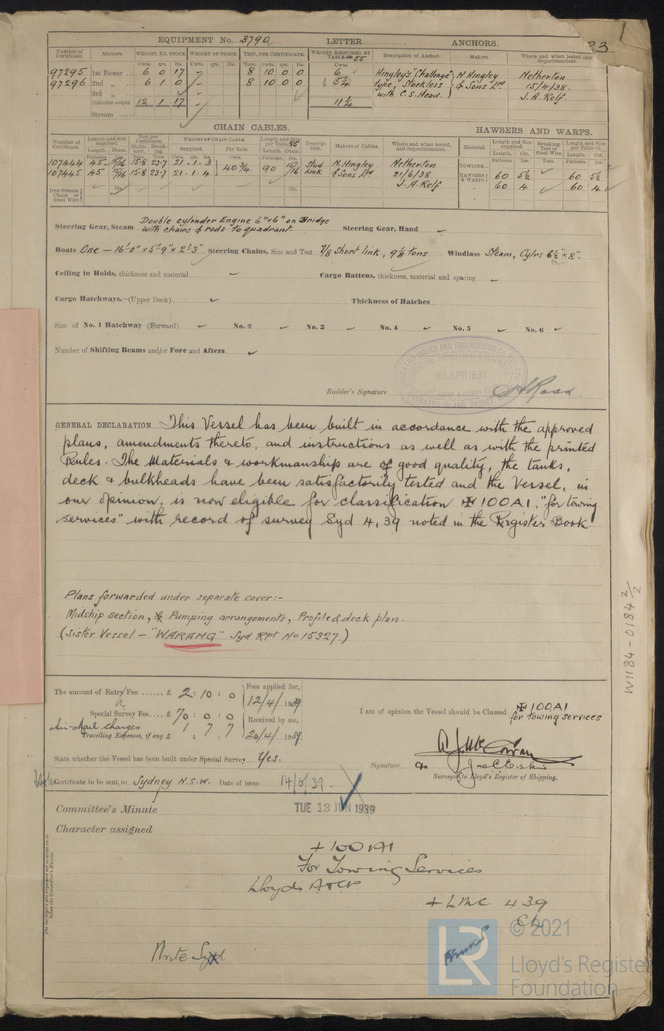 EQUIPMENT No. 3790 LETTER ANCHORS. 23
Number of Certificate. Anchors. WEIGHT, EX. STOCK. WEIGHT OF STOCK. TEST, PER CERTIFICATE. WEIGHT REQUIRED BY TABLE 55 Description of Anchor. Makers. Where and when tested and Superintendent.
97295 1st Bower 6 0 17 8 10 0 0 6 Hingley's "Challenge" N. Hingley Netherton
97296 2nd " 6 1 0 8 10 0 0 5¾ type, Stockless & Sons Ltd 15/4/38.
3rd " with C.S. Head. J.A. Relf
Collective weight 12 1 17 11¾
Stream
CHAIN CABLES. HAWSERS AND WARPS.
Number of Certificate. Length and size supplied. Test per Certificate. WEIGHT OF CHAIN CABLE. Length and size per Table 55 Description. Makers of Cables. Where and when tested, and Superintendent. Material. Length and size supplied. Breaking Test of Steel Wire. Length and size per Table 55.
107444 45 15/16 15·8 23·7 21.1.3 40¾ 90 15/16 Stud Link N. Hingley Netherton TOWLINE
107445 45 15/16 15·8 23·7 21.1.4 & Sons Ltd 21/6/38 HAWSERS & WARPS 60 5½ 60 5½
J.A. Relf 60 4 60 4
Iron Stream Chain or Steel Wire
Steering Gear, Steam Double cylinder Engine 6"x6" on Bridge with chains & rods to quadrant. Steering Gear, Hand
Boats One – 16'-0" x 5'-9" x 2'-3" Steering Chains, Size and Test 7/8 short link, 9⅛ tons Windlass Steam, Cylrs 6½" x 8".
Ceiling in Holds, thickness and material Cargo Battens, thickness, material and spacing
Cargo Hatchways.—(Upper Deck) Thickness of Hatches
Size of No. 1 Hatchway (Forward) No. 2 No. 3 No. 4 No. 5 No. 6
Number of Shifting Beams and/or Fore and Afters
24 APR 1939
Builder's Signature A Ross
GENERAL DECLARATION This Vessel has been built in accordance with the approved
plans, amendments thereto, and instructions as well as with the printed
Rules. The Materials & workmanship are of good quality, the tanks,
deck & bulkheads have been satisfactorily tested and the Vessel, in
our opinion, is now eligible for classification ✠ 100A1, "for towing
services" with record of survey Syd 4,39 noted in the Register Book.
Plans forwarded under separate cover:-
Midship section, & Pumping arrangements, Profile & deck plan.
(Sister Vessel – "WARANG" Syd Rpt No 15327.)
W1184-0184 2/2
The amount of Entry Fee ...... £ 2 : 10 : 0 Fees applied for, 12/4/1939
Special Survey Fee.... £ 70 : 0 : 0 Received by me,
Air-mail charges
Travelling Expenses, if any £ 1 : 7 : 7 20/4/1939
I am of opinion the Vessel should be Classed ✠ 100A1
for towing services
State whether the Vessel has been built under Special Survey Yes.
Signature
Surveyor to Lloyd's Register of Shipping.
Certificate to be sent to Sydney N.S.W. Date of issue 14/6/39.
Committee's Minute TUE 13 JUN 1939
Character assigned
+100A1
For Towing Services
Lloyds A&CP
+LMC 4 39
CL
Write Syd
LR © 2021
Lloyd's Register
Foundation